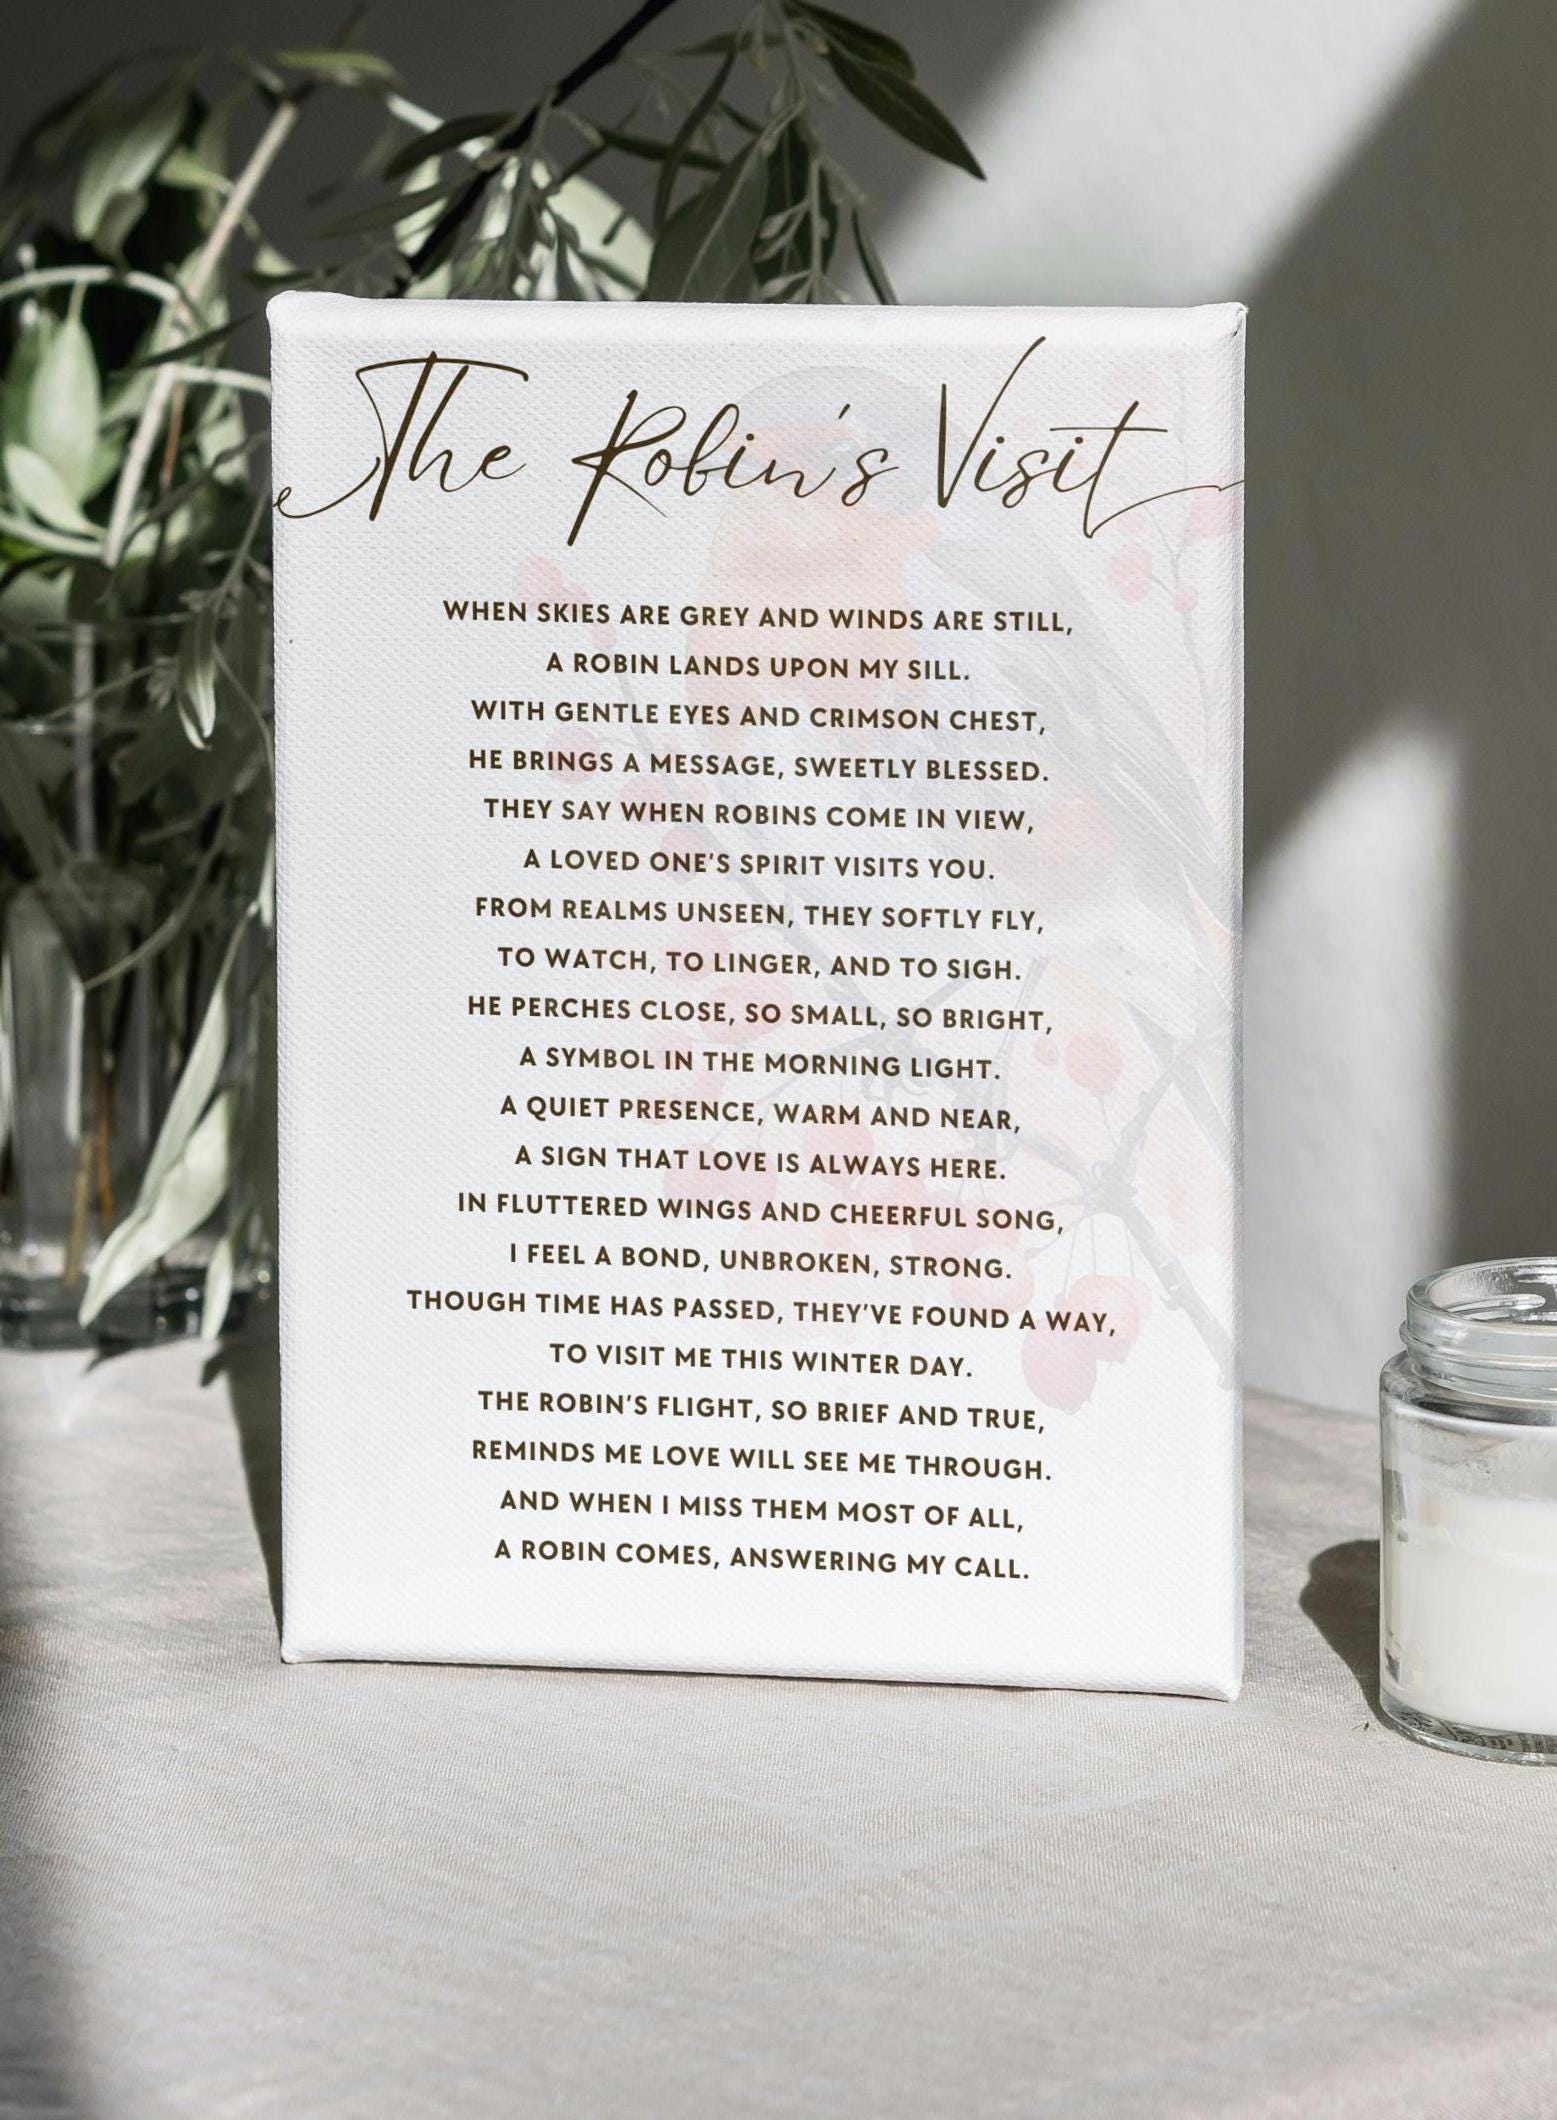 The Robin's Visit
WHEN SKIES ARE GREY AND WINDS ARE STILL,
A ROBIN LANDS UPON MY SILL.
WITH GENTLE EYES AND CRIMSON CHEST,
HE BRINGS A MESSAGE, SWEETLY BLESSED.
THEY SAY WHEN ROBINS COME IN VIEW,
A LOVED ONE'S SPIRIT VISITS YOU.
FROM REALMS UNSEEN, THEY SOFTLY FLY,
TO WATCH, TO LINGER, AND TO SIGH.
HE PERCHES CLOSE, SO SMALL, SO BRIGHT,
A SYMBOL IN THE MORNING LIGHT.
A QUIET PRESENCE, WARM AND NEAR,
A SIGN THAT LOVE IS ALWAYS HERE.
IN FLUTTERED WINGS AND CHEERFUL SONG,
I FEEL A BOND, UNBROKEN, STRONG.
THOUGH TIME HAS PASSED, THEY'VE FOUND A WAY,
TO VISIT ME THIS WINTER DAY.
THE ROBIN'S FLIGHT, SO BRIEF AND TRUE,
REMINDS ME LOVE WILL SEE ME THROUGH.
AND WHEN I MISS THEM MOST OF ALL,
A ROBIN COMES, ANSWERING MY CALL.